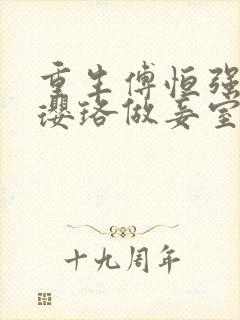 重生傅恒强
璎珞做妾室
十九周年